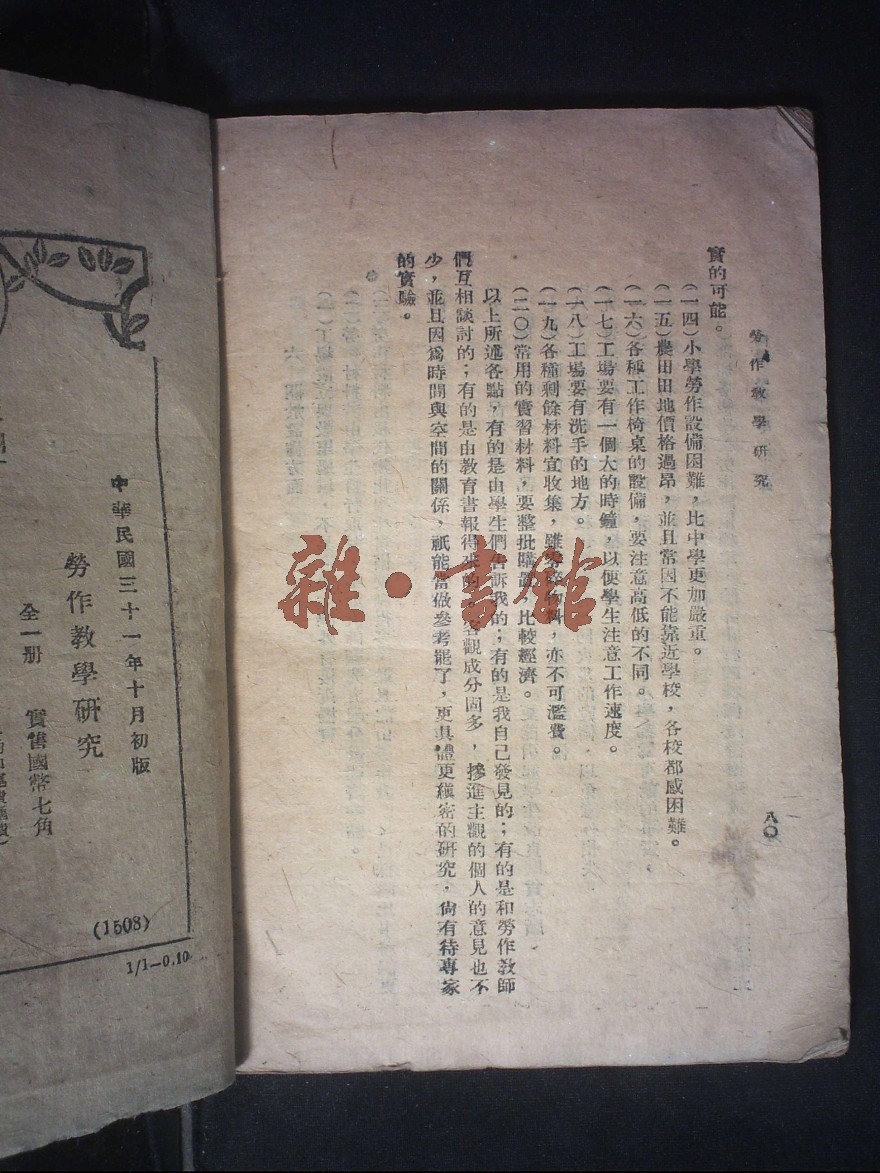 勞作教學研究
八〇
實的可能。
(一四)小學勞作設備困難，比中學更加嚴重。
(一五)農田田地價格過昂，並且常因不能靠近學校，各校都感困難。
(一六)各種工作椅桌的設備，要注意高低的不同。
(一七)工場要有一個大的時鐘，以便學生注意工作速度。
(一八)工場要有洗手的地方。
(一九)各種剩餘材料宜收集，雖零碎物料，亦不可濫費。
(二〇)常用的實習材料，要整批購置，比較經濟。
以上所述各點，有的是由學生們告訴我的；有的是我自己發見的；有的是和勞作教師
們互相談討的；有的是由教育書報得來的。客觀成分固多，摻進主觀的個人的意見也不
少，並且因爲時間與空間的關係，祇能當做參考罷了，更具體更縝密的研究，尙有待專家
的實驗。
雜·書館
中華民國三十一年十月初版
勞作教學研究
全一册
實售國幣七角
(1508)
1/1—0.10